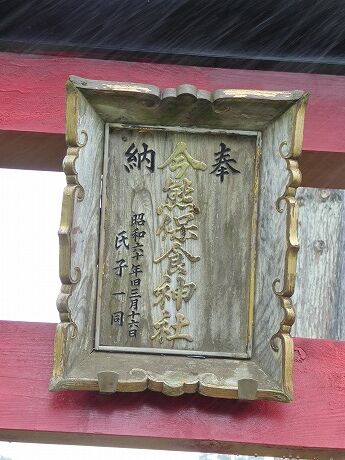 奉納
今熊保食神社
昭和六十年旧三月十六日
氏子一同